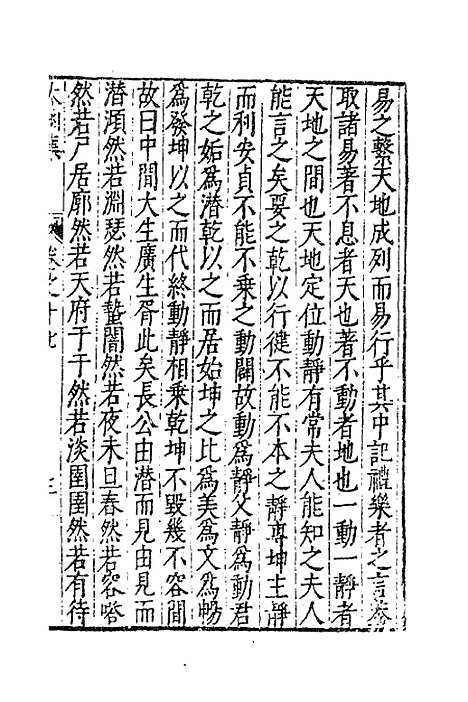 易之繫天地成列而易行乎其中記禮樂者之言蓋
取諸易著不息者天也著不動者地也一動一靜者
天地之間也天地定位動靜有常夫人能知之夫人
能言之矣要之乾以行徤不能不本之靜專坤主靜
而利安貞不能不乗之動闢故動爲靜父靜爲動君
乾之姤爲潜乾以之而居始坤之比爲美爲文爲暢
爲發坤以之而代終動靜相乗乾坤不毀幾不容間
故曰中間大生廣生胥此矣長公由潜而見由見而
潜澒然若淵瑟然若蟄闇然若夜未旦春然若容嗒
然若尸居廓然若天府于于然若淡圉圉然若有待
太函集
卷之十七